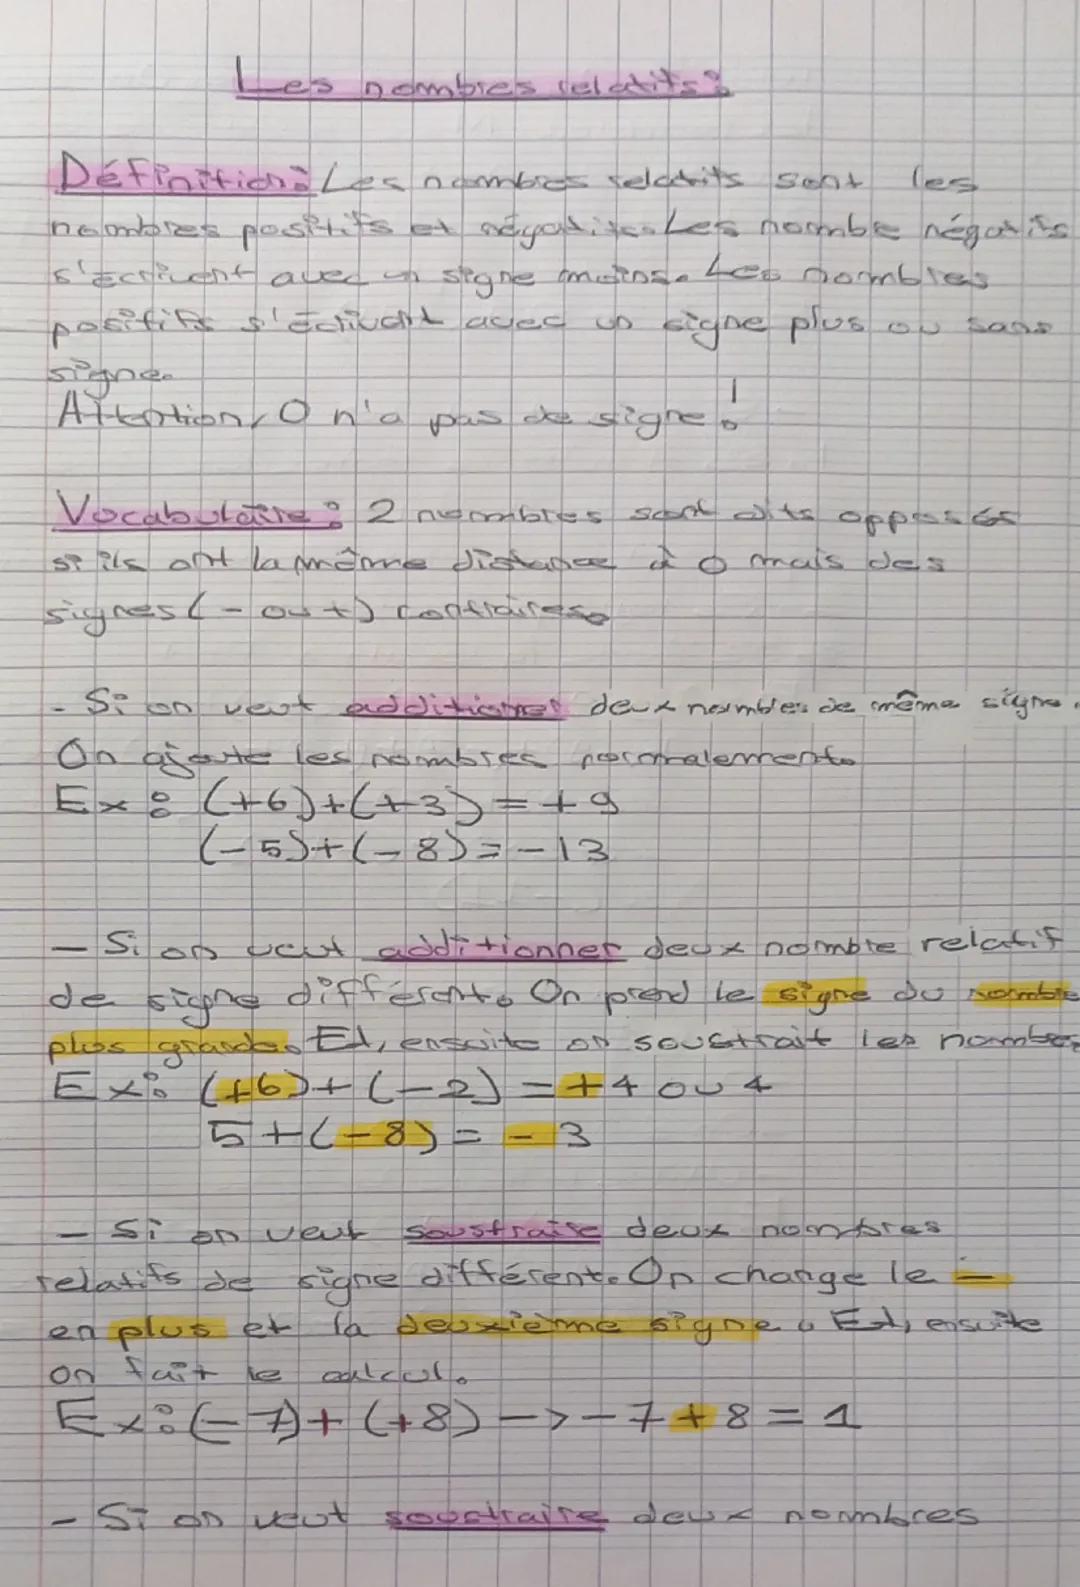 Les nombres relatifs :
Définition : Les nombres relatifs sont les
nombres positifs et négatifs. Les nombre négatifs
s'écrivent avec un signe moins. Les nombres
positifs s'écrivent avec un signe plus ou sans
signe.
Attention, 0 n'a pas de signe !
Vocabulaire : 2 nombres sont dits opposés
si ils ont la même distance à 0 mais des
signes (- ou +) contraires.
- Si on veut additionner deux nombres de même signe.
On ajoute les nombres normalement.
Ex : (+6)+(+3) = +9
(-5)+(-8) = -13
- Si on veut additionner deux nombre relatif
de signe différent. On prend le signe du nombre
plus grande. Et, ensuite on soustrait les nombres
Ex : (+6)+(-2) = +4 ou 4
5+(-8) = -3
- Si on veut soustraire deux nombres
relatifs de signe différent. On change le -
en plus et la deuxième signe. Et, ensuite
on fait le calcul.
Ex : (-7)+(+8) -> -7+8 = 1
- Si on veut soustraire deux nombres